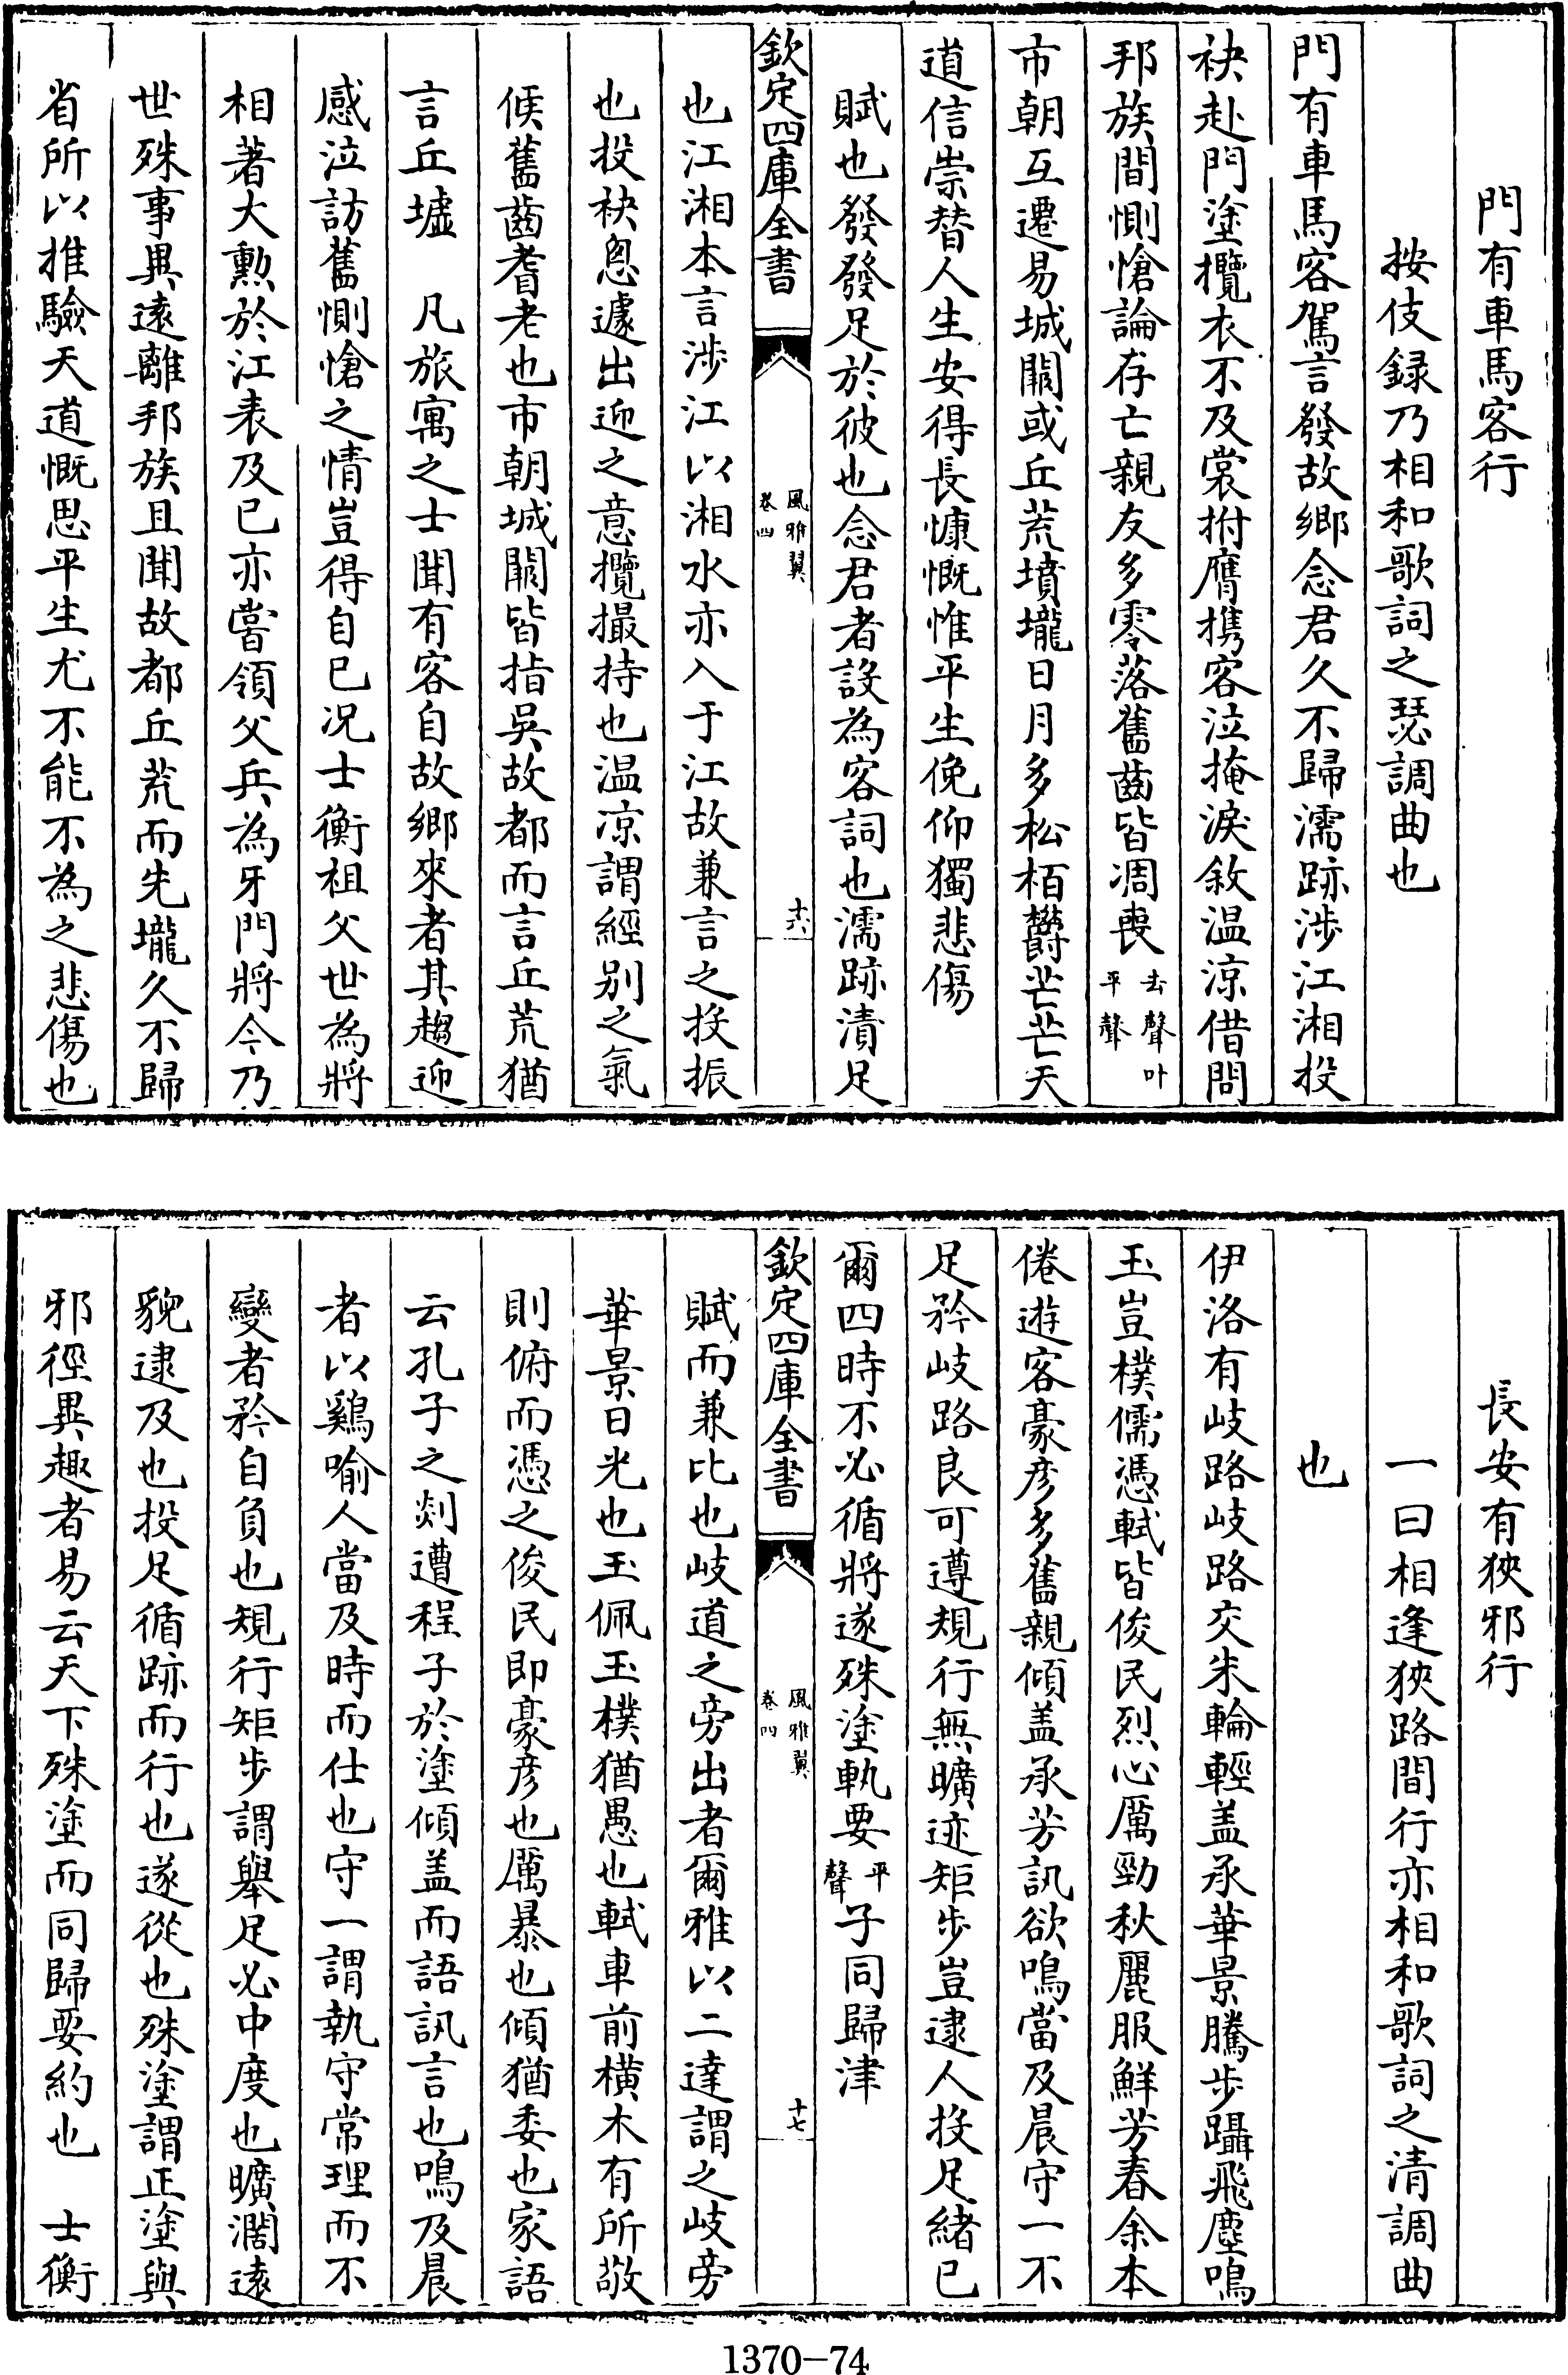 門有車馬客行
按伎録乃相和歌詞之瑟調曲也
門有車馬客駕言發故鄉念君久不歸濡跡涉江湘投
袂赴門塗攬衣不及裳拊膺携客泣掩淚敘温涼借問
邦族間惻愴論存亡親友多零落舊齒皆凋喪去聲叶平聲
市朝互遷易城闕或丘荒墳壠日月多松栢欝芒芒天
道信崇替人生安得長慷慨惟平生俛仰獨悲傷
賦也發發足於彼也念君者設為客詞也濡跡漬足
欽定四庫全書
風雅翼
卷四
十六
也江湘本言涉江以湘水亦入于江故兼言之投振
也投袂怱遽出迎之意攬撮持也温凉謂經别之氣
候舊齒耆老也市朝城闕皆指吳故都而言丘荒猶
言丘墟 凡旅寓之士聞有客自故鄉來者其趨迎
感泣訪舊惻愴之情豈得自已况士衡祖父世為將
相著大勲於江表及已亦嘗領父兵為牙門將今乃
世殊事異遠離邦族且聞故都丘荒而先壠久不歸
省所以推驗天道慨思平生尤不能不為之悲傷也
長安有狹邪行
一曰相逢狹路間行亦相和歌詞之清調曲
也
伊洛有岐路岐路交朱輪輕盖承華景騰步躡飛塵鳴
玉豈樸儒憑軾皆俊民烈心厲勁秋麗服鮮芳春余本
倦遊客豪彦多舊親傾盖承芳訊欲鳴當及晨守一不
足矜岐路良可遵規行無曠迹矩步豈逮人投足緒已
爾四時不必循將遂殊塗軌要平聲子同歸津
欽定四庫全書
風雅翼
卷四
十七
賦而兼比也岐道之旁出者爾雅以二達謂之岐旁
華景日光也玉佩玉樸猶愚也軾車前横木有所敬
則俯而憑之俊民即豪彦也厲暴也傾猶委也家語
云孔子之剡遭程子於塗傾盖而語訊言也鳴及晨
者以鷄喻人當及時而仕也守一謂執守常理而不
變者矜自負也規行矩步謂舉足必中度也曠濶遠
貌逮及也投足循跡而行也遂從也殊塗謂正塗與
邪徑異趣者易云天下殊塗而同歸要約也 士衡
1370-74